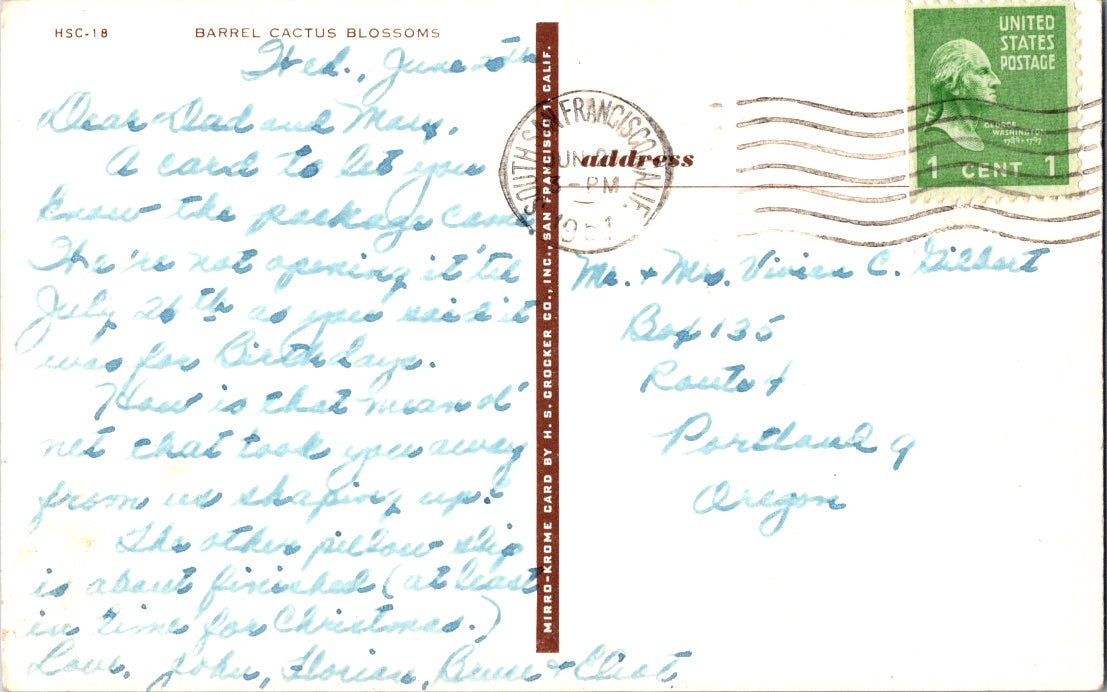 HSC-18 BARREL CACTUS BLOSSOMS
Wed., June
Dear Dad and Mary,
A card to let you
know the package came.
We're not opening it 'til
July 26th as you said it
was for Birthdays.
How is that mean ol'
net that took you away
from us shaping up?
The other pillow slip
is about finished (at least
in time for Christmas.)
Love, John, Florian, Bruce + Chet
MIRRO-KROME CARD BY H. S. CROCKER CO., INC., SAN FRANCISCO 1, CALIF.
SOUTH SAN FRANCISCO, CALIF.
JUN
PM
1951
address
UNITED
STATES
POSTAGE
GEORGE
WASHINGTON
1789-1797
1 CENT 1
Mr. + Mrs. Vivian C. Gilbert
Box 135
Route 4
Portland 9
Oregon